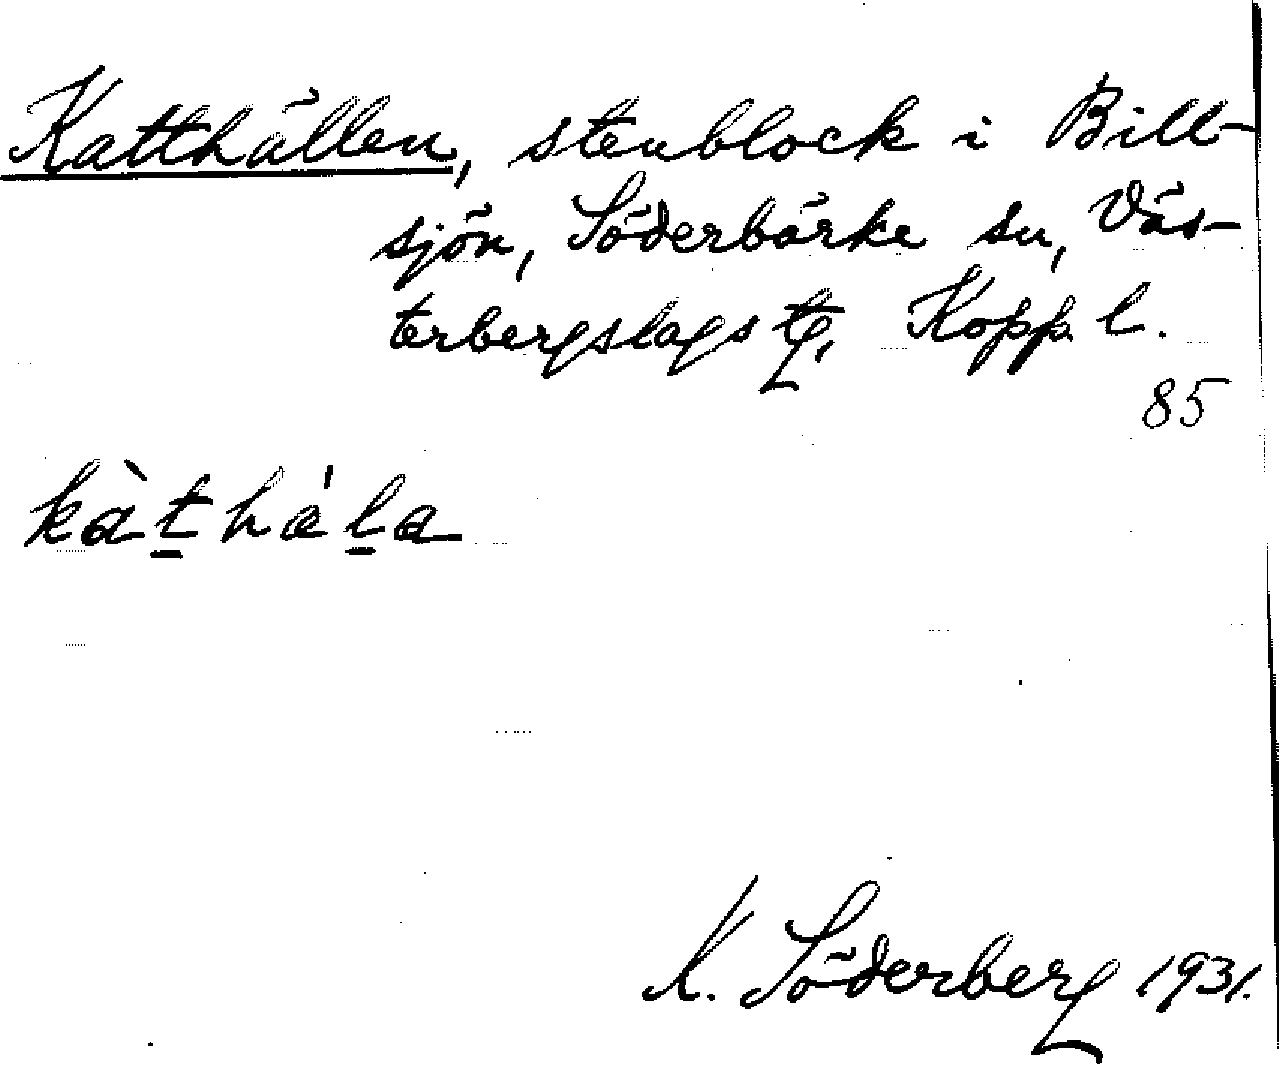 Katthällen, stenblock i Bill-
sjön, Söderbärke sn, Väs-
terbergslags tg, Kopp. l.
85
kàt̠hä̀l̠a
K. Söderberg 1931.